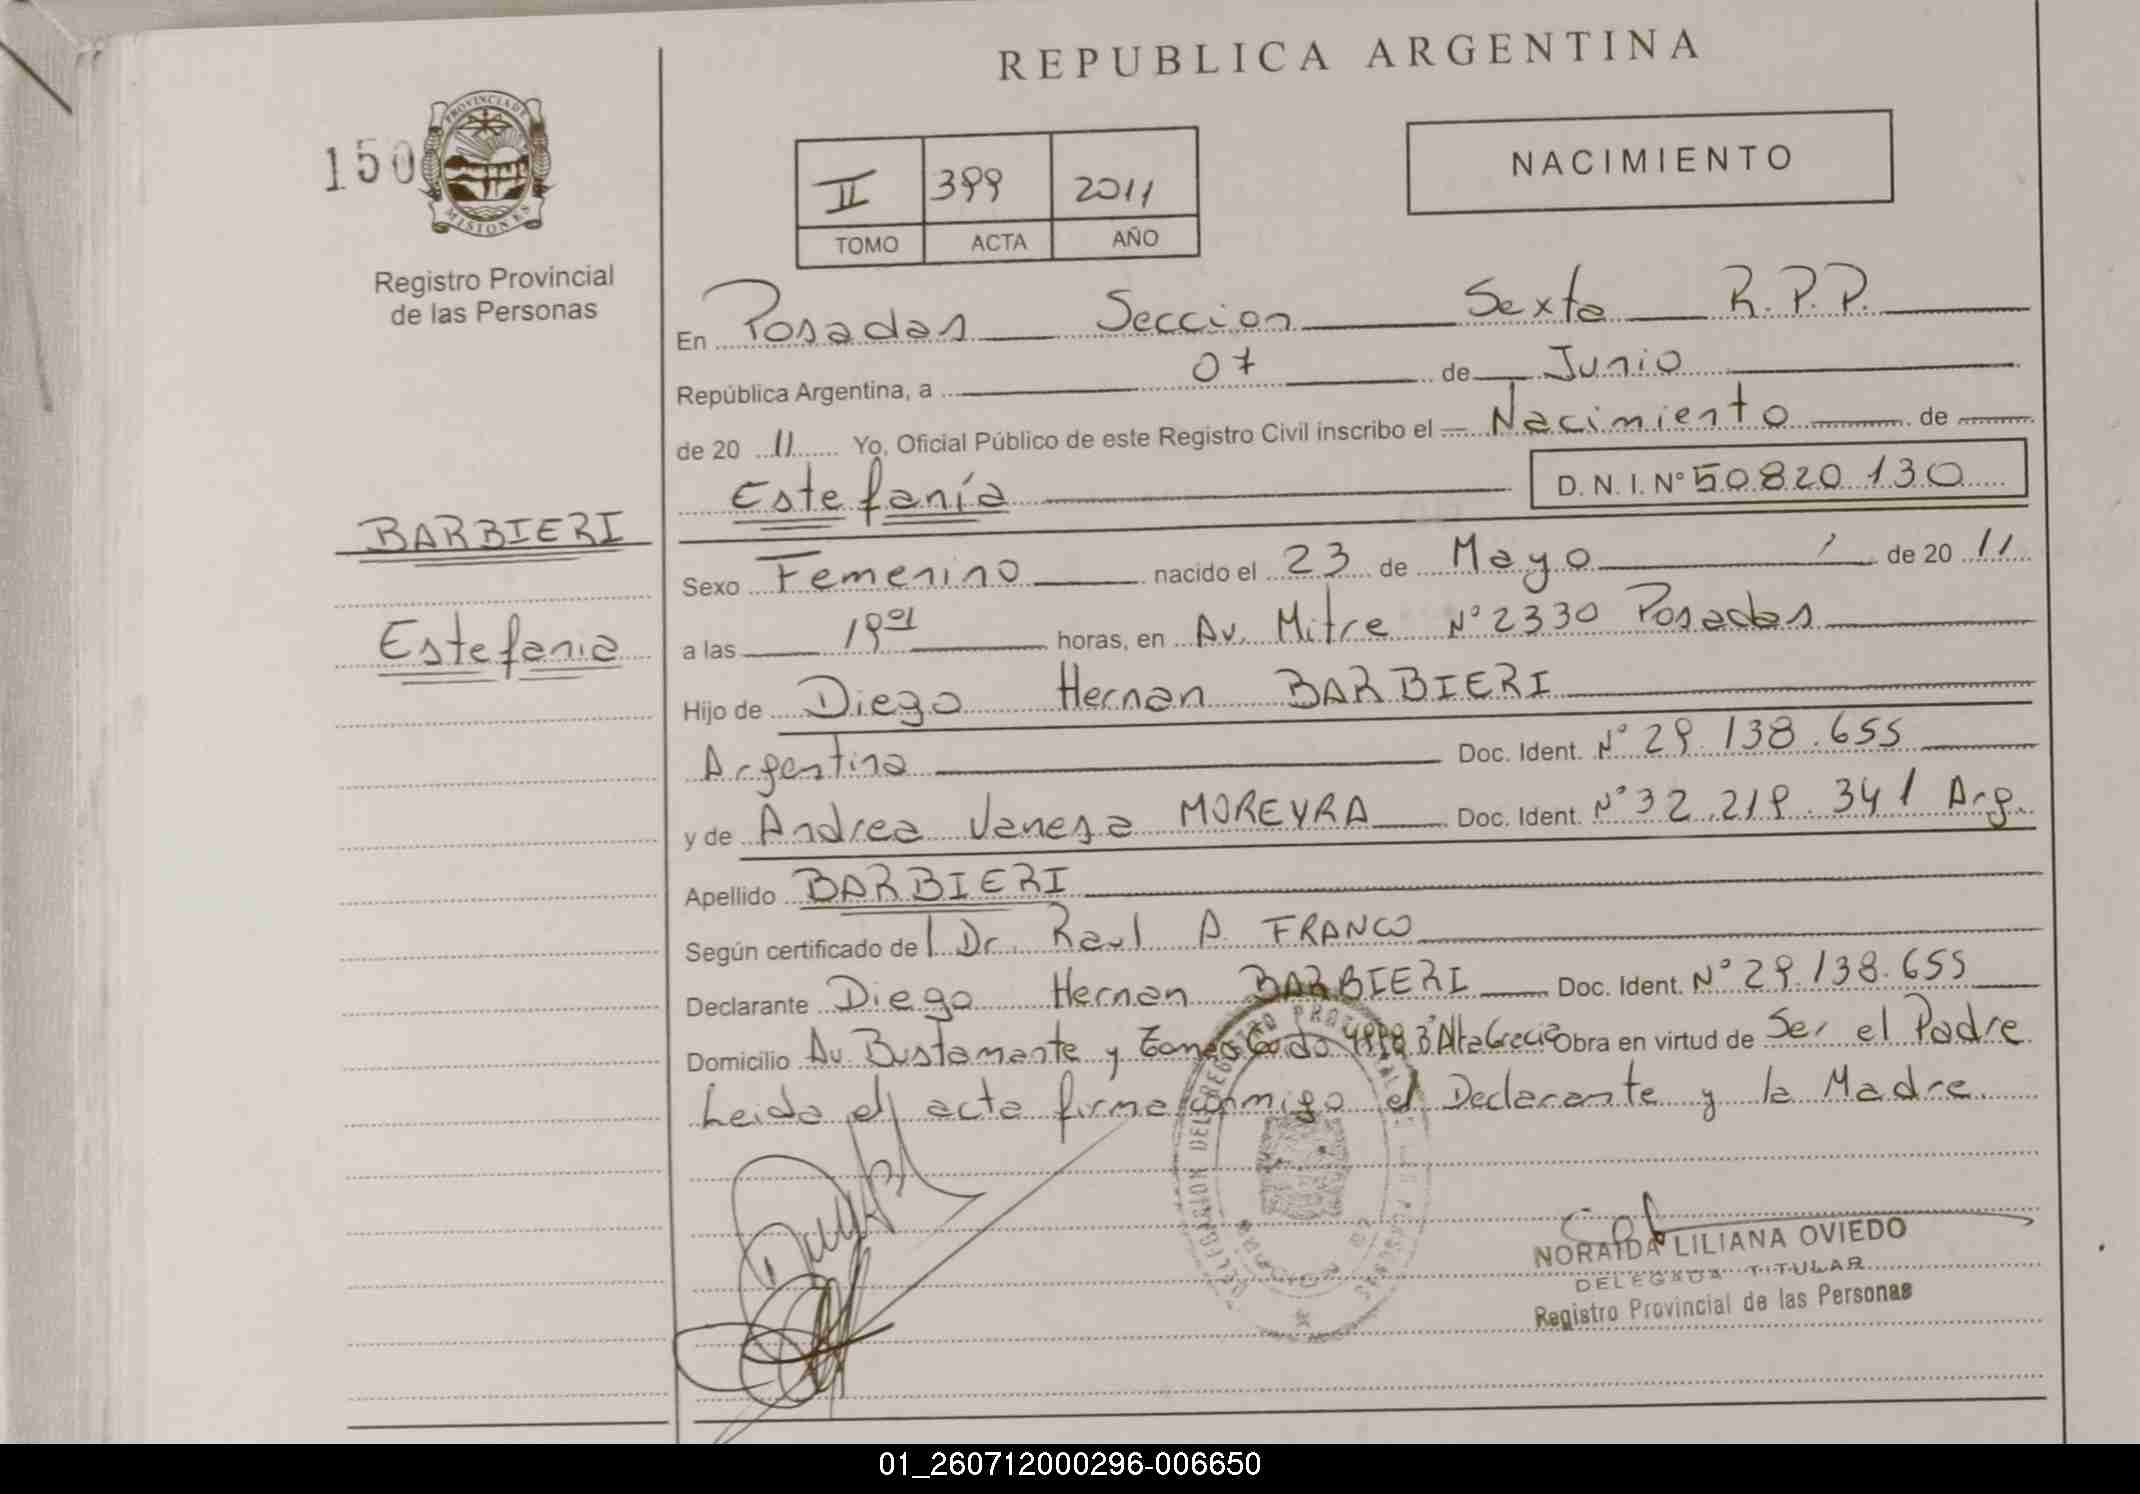 REPUBLICA ARGENTINA
150
PROVINCIA DE
MISIONES
Registro Provincial
de las Personas
II 399 2011
TOMO ACTA AÑO
NACIMIENTO
En Posadas Seccion Sexta R.P.P.
República Argentina, a 07 de Junio
de 20 11 Yo, Oficial Público de este Registro Civil inscribo el Nacimiento de
Estefanía D.N.I. Nº 50820130
BARBIERI
Estefania
Sexo Femenino nacido el 23 de Mayo de 20 11
a las 19 01 horas, en Av. Mitre Nº 2330 Posadas
Hijo de Diego Hernan BARBIERI
Argentina Doc. Ident. Nº 29.138.655
y de Andrea Vanesa MOREYRA Doc. Ident. Nº 32.219.341 Arg.
Apellido BARBIERI
Según certificado de Dr. Raul A. FRANCO
Declarante Diego Hernan BARBIERI Doc. Ident. Nº 29.138.655
Domicilio Av. Bustamante y Bº Alta Grecia Obra en virtud de Ser el Padre
Leida el acta firma conmigo el Declarante y la Madre
NORAIDA LILIANA OVIEDO
DELEGADA TITULAR
Registro Provincial de las Personas
01_260712000296-006650